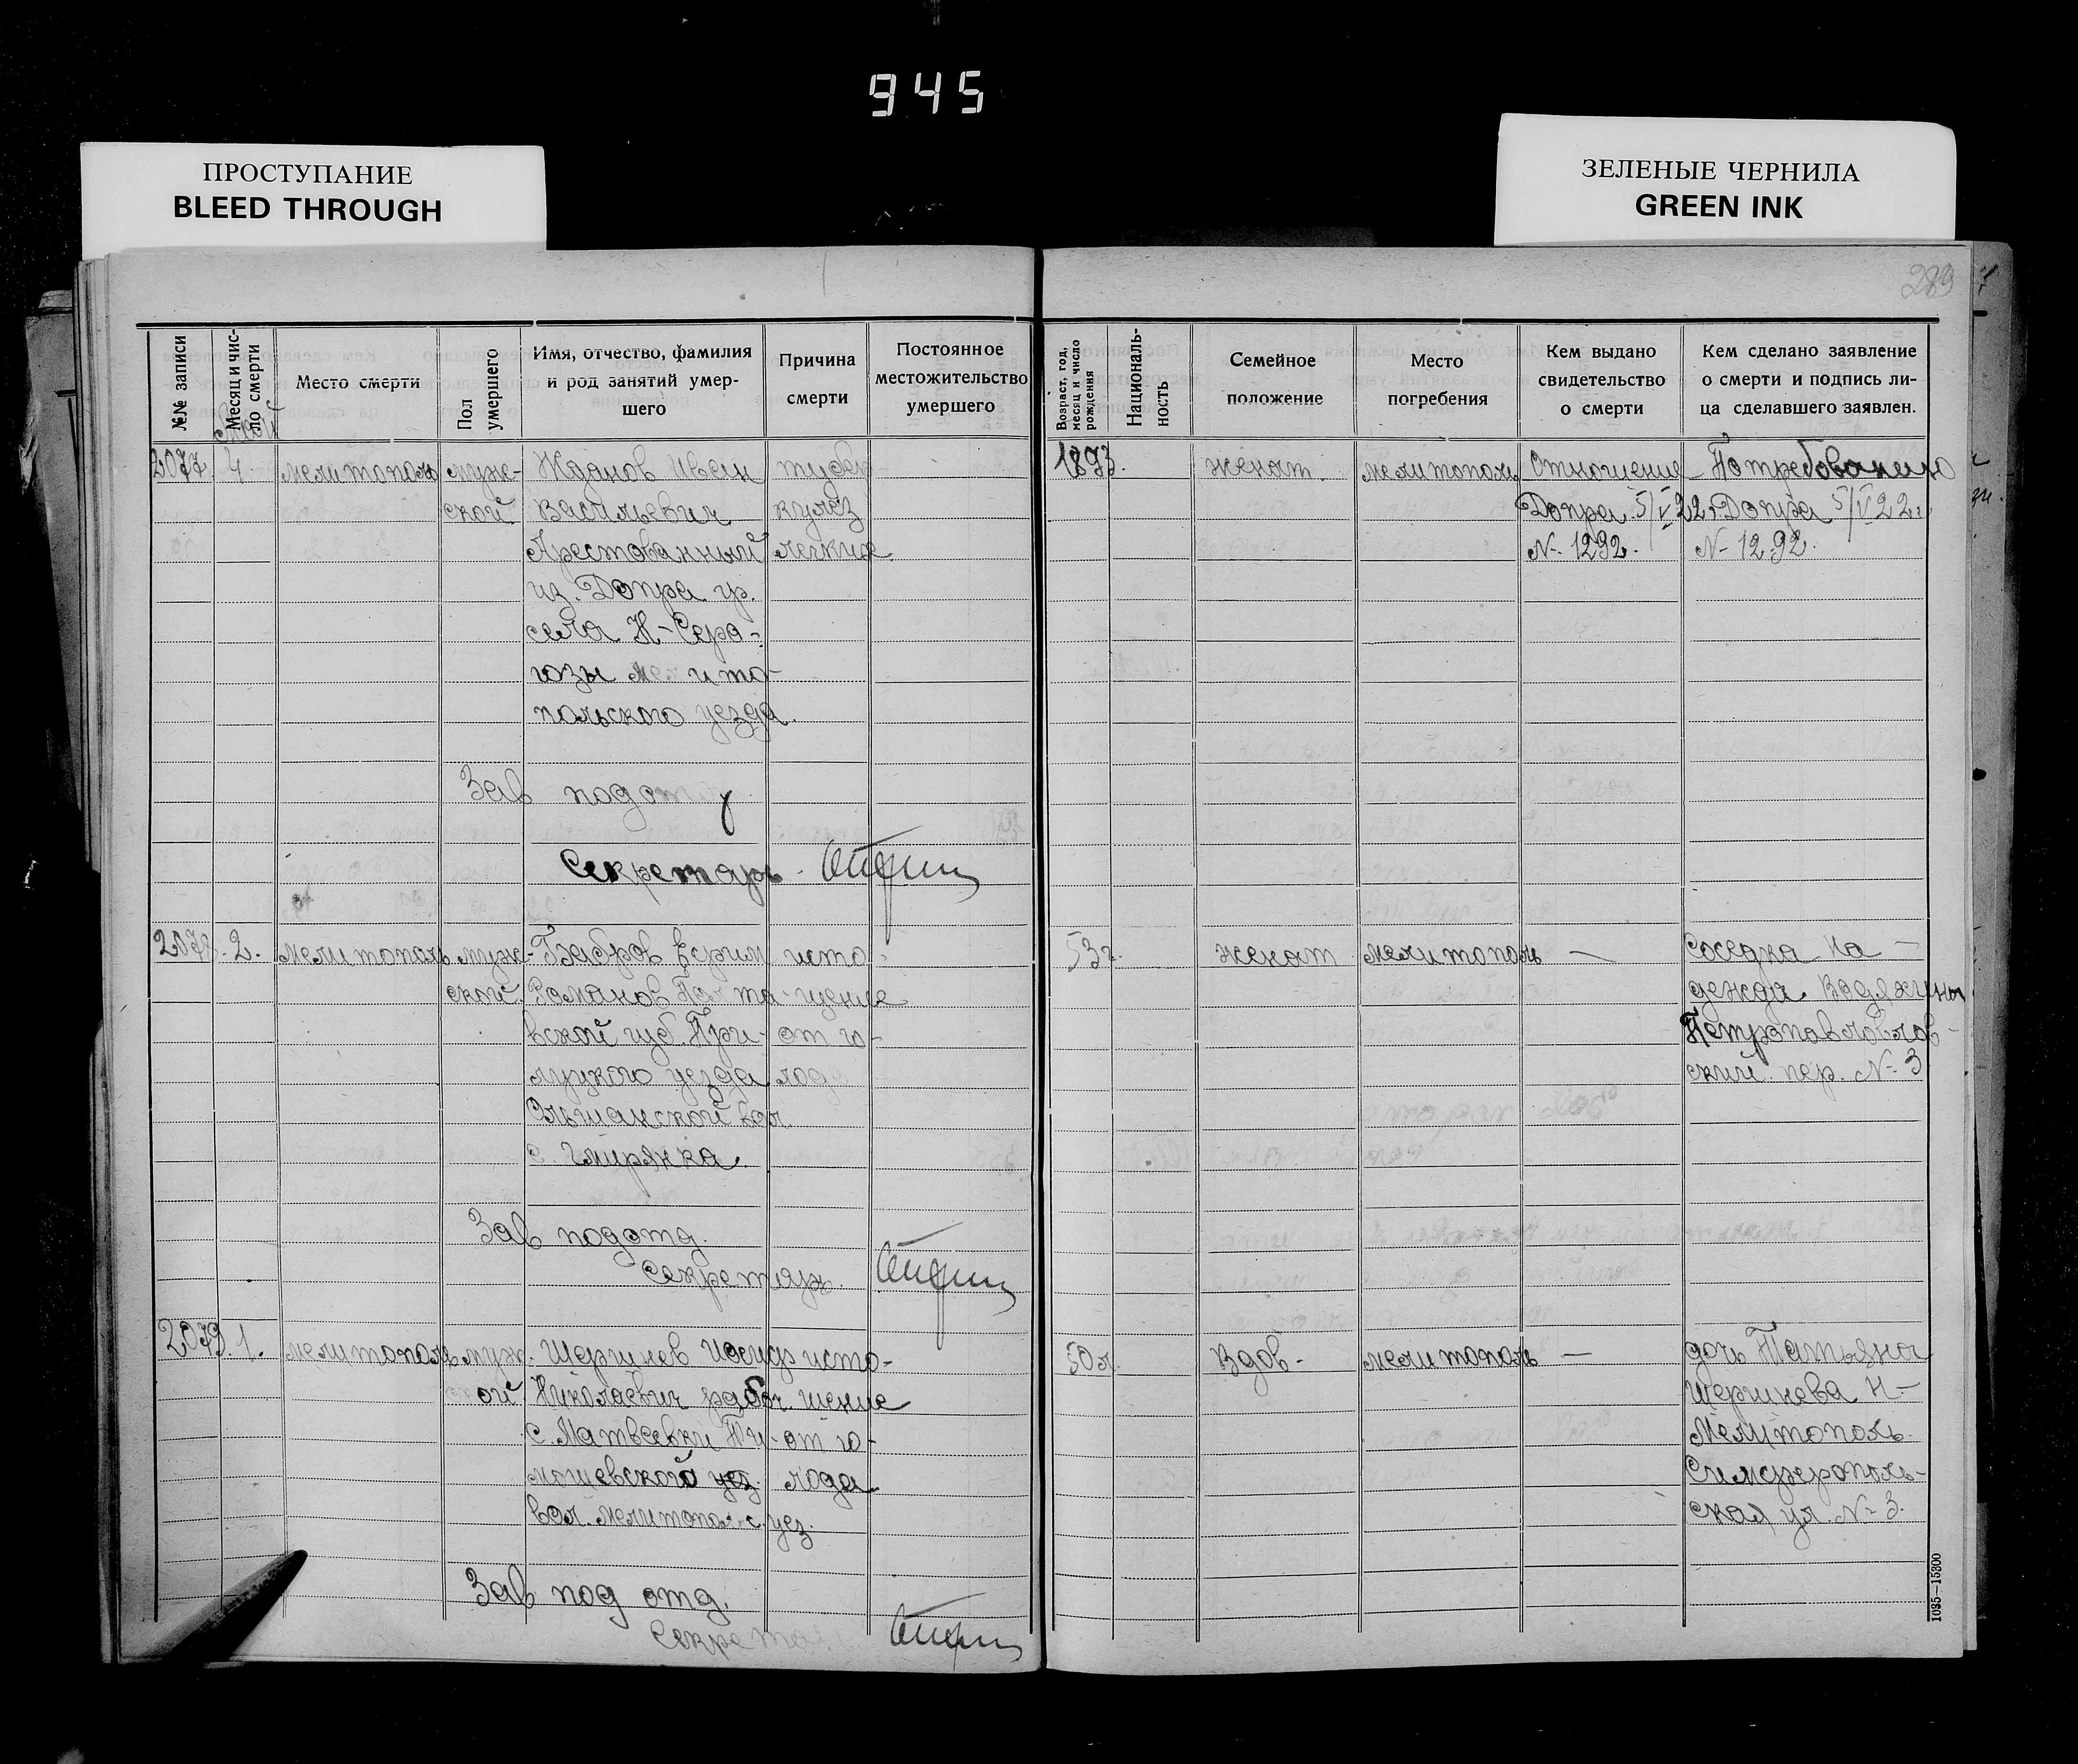 945
ПРОСТУПАНИЕ
BLEED THROUGH
ЗЕЛЕНЫЕ ЧЕРНИЛА
GREEN INK
289
№№ записи
Месяц и чис-
ло смерти
Место смерти
Пол
умершего
Имя, отчество, фамилия
и род занятий умер-
шего
Причина
смерти
Постоянное
местожительство
умершего
Возраст, год,
месяц и число
рождения
Националь-
ность
Семейное
положение
Место
погребения
Кем выдано
свидетельство
о смерти
Кем сделано заявление
о смерти и подпись ли-
ца сделавшего заявлен.
Май
2077.
4
мелитополь
муж-
ской
Жданов Иван
Васильевич
Арестованный
из Допра гр.
села Н-Серо-
гозы мелито-
польского уезда.
тубер
кулез
легких
1893.
женат.
мелитополь
Отношение
Допра 5/V 22 г.
№ 1292.
По требованию
Допра 5/V 22 г.
№ 1292.
Зав подот
Секретарь
2078.
2.
мелитополь
муж-
ской.
Романов Полта-
вской губ. При-
луцкого уезда
Ольшанской вол.
с. Гмирянка.
исто
щение
от го-
лода
53 г.
женат
мелитополь
—
Соседка На-
дежда
Петропавловлов-
ский пер. № 3
Зав подотд.
Секретарь.
2079.
1.
мелитополь
муж.
ской
Николаевич рабоч.
с. Матвеевки Ти-
мошевского уез.
вол. мелитопол с. уез.
исто-
щение
от го-
лода
50 л.
Вдов-
мелитополь
—
дочь Татьяна
Н-
Мелитополь.
Симферополь-
ская ул. № 3.
Зав под отд.
Секретарь
1035—15300